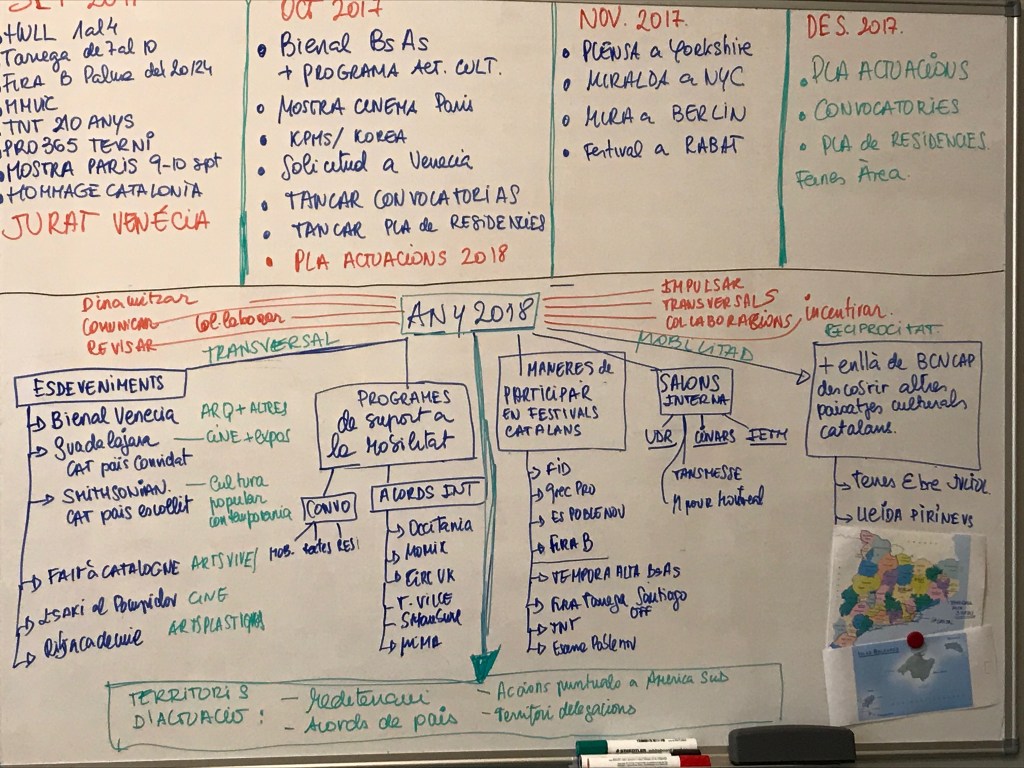 SET 2017
HWLL 1al4
Tarrega de 7 al 10
FIRA B Palma del 20/24
MMVC
TNT 210 ANYS
PRO365 TERNI
MOSTRA PARIS 9-10 spt
HOMMAGE CATALONIA
JURAT VENÉCIA
OCT 2017
Bienal BsAs
+ PROGRAMA ACT. CULT.
MOSTRA CINEMA Paris
KPMS/ KOREA
Solicitud a Venecia
TANCAR CONVOCATORIAS
TANCAR PLA de RESIDENCIES
PLA ACTUACIONS 2018
NOV. 2017.
PLENSA a Yorkshire
MIRALDA a NYC
MIRA a BERLIN
Festival a RABAT
DES. 2017.
PLA ACTUACIONS
CONVOCATORIES
PLA de RESIDENCIES.
Feines Àrea.
Dinamitzar
COMUNICAR
Col.laborar
REVISAR
ANY 2018
IMPULSAR
TRANSVERSALS
COL.LABORACIONS
incentivar.
RECIPROCITAT.
TRANSVERSAL
MOBILITAD
ESDEVENIMENTS
Bienal Venecia ARQ + ALTRES
Guadalajara — CINE + expos
CAT país Convidat
SMITHSONIAN. — Cultura
CAT país escollit popular
contemporania
FAIR à CATALOGNE ARTS VIVE/
al Pompidou CINE
ARTSPLASTIQUES
PROGRAMES
de suport a
la Mobilitat
CONVO
MOB. textes RESI
ACORDS INT
Occitania
MOMIX
CIRC UK
T. VILLE
MIMA
MANERES de
PARTICIPAR
EN FESTIVALS
CATALANS
FID
grec PRO
ES POBLENOU
FIRA B
TEMPORA ALTA BSAS
FIRA Tarrega Santiago
OFF
TNT
Escena Poblenou
SALONS
INTERNA
UDR CINARS IETM
TANZMESSE
+ enllà de BCNCAP
descobrir altres
paisatges culturals
catalans.
Terres Ebre JULIOL
LLEIDA PIRINEUS
TERRITORIS
D'ACTUACIÓ :
— Mediterrani
— Acords de país
— Accions puntuals a America Sud
— Territori delegacions
STAEDTLER